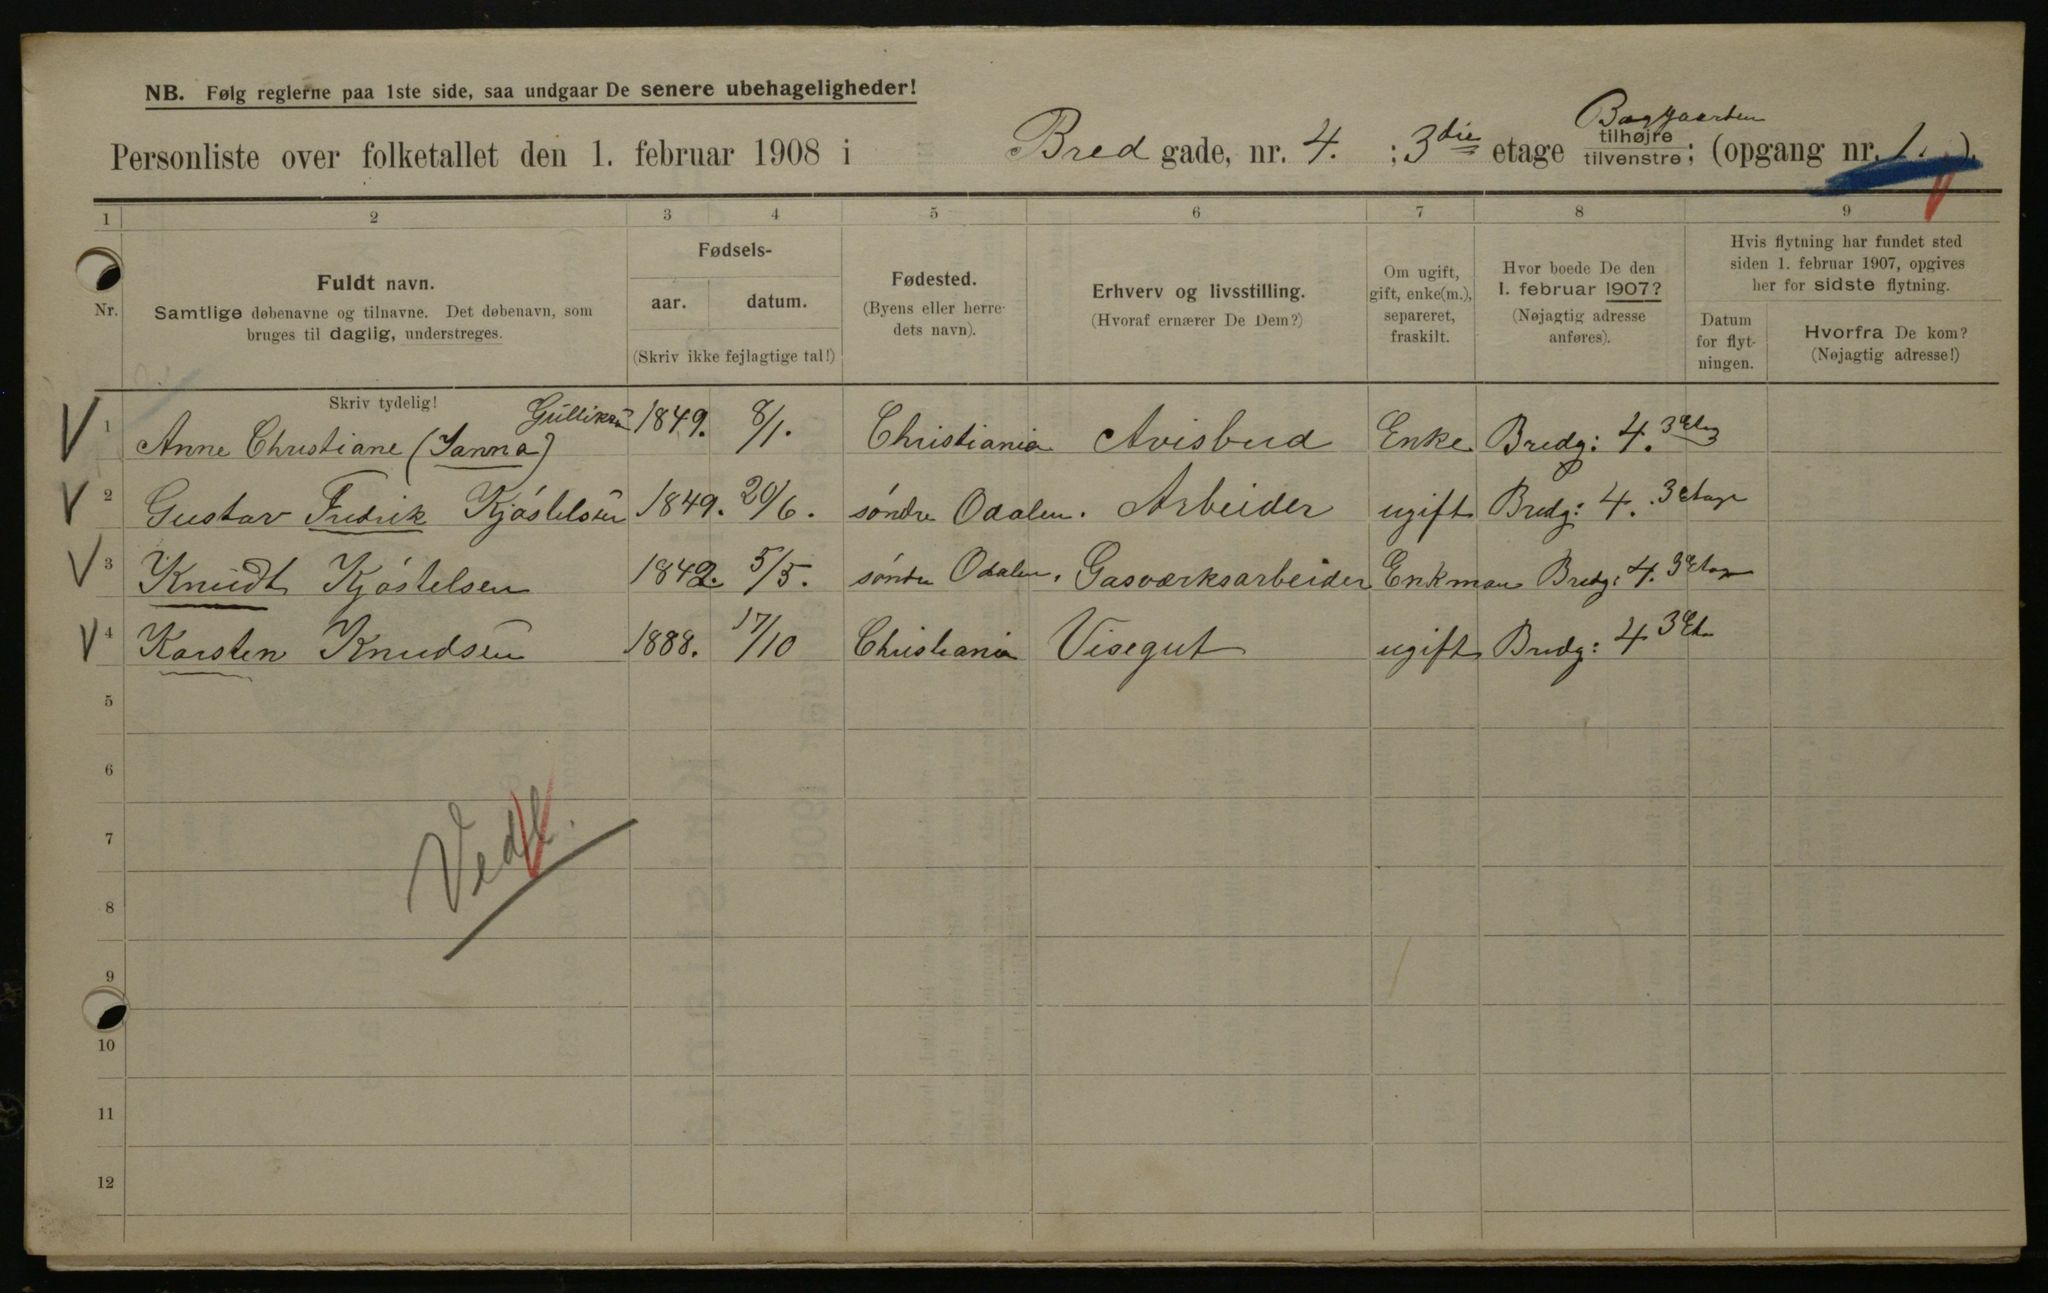 NB. Følg reglerne paa 1ste side, saa undgaar De senere ubehageligheder!
Personliste over folketallet den 1. februar 1908 i Bred gade, nr. 4. ; 3die etage Baggaarden tilhøjre tilvenstre; (opgang nr. 1. ).
1 2 3 4 5 6 7 8 9
Nr.
Fuldt navn.
Samtlige døbenavne og tilnavne. Det døbenavn, som
bruges til daglig, understreges.
Fødsels-
aar. datum.
(Skriv ikke fejlagtige tal!)
Fødested.
(Byens eller herre-
dets navn).
Erhverv og livsstilling.
(Hvoraf ernærer De Dem?)
Om ugift,
gift, enke(m.),
separeret,
fraskilt.
Hvor boede De den
1. februar 1907?
(Nøjagtig adresse
anføres).
Hvis flytning har fundet sted
siden 1. februar 1907, opgives
her for sidste flytning.
Datum
for flyt-
ningen.
Hvorfra De kom?
(Nøjagtig adresse!)
Skriv tydelig!
1 Anne Christiane (Janna) Gulliksen 1849. 8/1. Christiania Avisbud Enke. Bredg: 4. 3 Etag
2 Gustav Fredrik Kjøstelsen 1849. 20/6. søndre Odalen. Arbeider ugift Bredg: 4. 3 etage
3 Knudt Kjøstelsen 1842. 5/5. søndre Odalen. Gasværksarbeider Enkman Bredg: 4. 3 Etage
4 Karsten Knudsen 1888. 17/10 Christiania Visegut ugift Bredg: 4 3 Eta
5
6
7
8
9
10
11
12